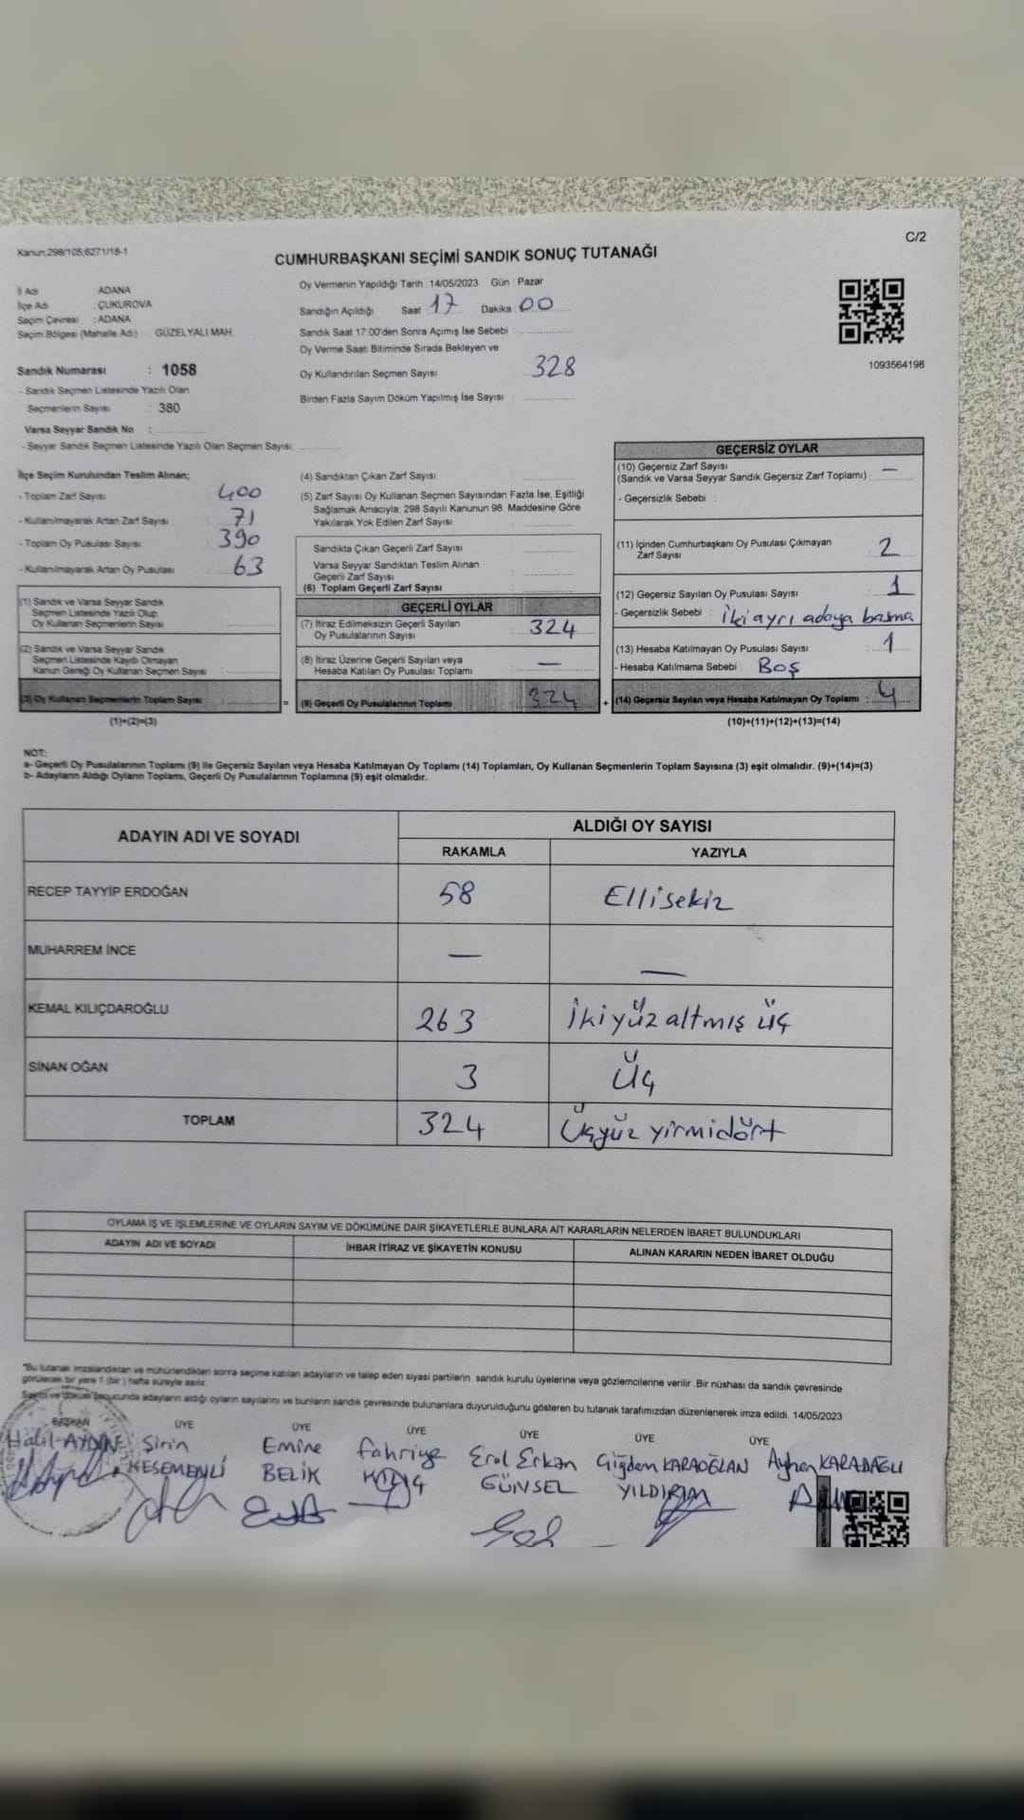 Kanun:298/105;6271/18-1
C/2
CUMHURBAŞKANI SEÇİMİ SANDIK SONUÇ TUTANAĞI
İl Adı : ADANA
İlçe Adı : ÇUKUROVA
Seçim Çevresi : ADANA
Seçim Bölgesi (Mahalle Adı) : GÜZELYALI MAH.
Sandık Numarası : 1058
- Sandık Seçmen Listesinde Yazılı Olan
Seçmenlerin Sayısı : 380
Varsa Seyyar Sandık No :
- Seyyar Sandık Seçmen Listesinde Yazılı Olan Seçmen Sayısı:
Oy Vermenin Yapıldığı Tarih :14/05/2023 Gün : Pazar
Sandığın Açıldığı Saat 17 Dakika 00
Sandık Saat 17:00'den Sonra Açımış İse Sebebi
Oy Verme Saati Bitiminde Sırada Bekleyen ve
Oy Kullandırılan Seçmen Sayısı 328
Birden Fazla Sayım Döküm Yapılmış İse Sayısı
1093564196
İlçe Seçim Kurulundan Teslim Alınan;
- Toplam Zarf Sayısı 400
- Kullanılmayarak Artan Zarf Sayısı 71
- Toplam Oy Pusulası Sayısı 390
- Kullanılmayarak Artan Oy Pusulası 63
(1) Sandık ve Varsa Seyyar Sandık
Seçmen Listesinde Yazılı Olup
Oy Kullanan Seçmenlerin Sayısı
(2) Sandık ve Varsa Seyyar Sandık
Seçmen Listesinde Kayıtlı Olmayan
Kanun Gereği Oy Kullanan Seçmen Sayısı
(3) Oy Kullanan Seçmenlerin Toplam Sayısı
(1)+(2)=(3)
(4) Sandıktan Çıkan Zarf Sayısı
(5) Zarf Sayısı Oy Kullanan Seçmen Sayısından Fazla İse, Eşitliği
Sağlamak Amacıyla, 298 Sayılı Kanunun 98. Maddesine Göre
Yakılarak Yok Edilen Zarf Sayısı
Sandıkta Çıkan Geçerli Zarf Sayısı
Varsa Seyyar Sandıktan Teslim Alınan
Geçerli Zarf Sayısı
(6) Toplam Geçerli Zarf Sayısı
GEÇERLİ OYLAR
(7) İtiraz Edilmeksizin Geçerli Sayılan
Oy Pusulalarının Sayısı 324
(8) İtiraz Üzerine Geçerli Sayılan veya
Hesaba Katılan Oy Pusulası Toplamı —
= (9) Geçerli Oy Pusulalarının Toplamı 324
GEÇERSİZ OYLAR
(10) Geçersiz Zarf Sayısı
(Sandık ve Varsa Seyyar Sandık Geçersiz Zarf Toplamı) : —
- Geçersizlik Sebebi :
(11) İçinden Cumhurbaşkanı Oy Pusulası Çıkmayan
Zarf Sayısı 2
(12) Geçersiz Sayılan Oy Pusulası Sayısı 1
- Geçersizlik Sebebi : İki ayrı adaya basma
(13) Hesaba Katılmayan Oy Pusulası Sayısı 1
- Hesaba Katılmama Sebebi : Boş
+ (14) Geçersiz Sayılan veya Hesaba Katılmayan Oy Toplamı : 4
(10)+(11)+(12)+(13)=(14)
NOT:
a- Geçerli Oy Pusulalarının Toplamı (9) ile Geçersiz Sayılan veya Hesaba Katılmayan Oy Toplamı (14) Toplamları, Oy Kullanan Seçmenlerin Toplam Sayısına (3) eşit olmalıdır. (9)+(14)=(3)
b- Adayların Aldığı Oyların Toplamı, Geçerli Oy Pusulalarının Toplamına (9) eşit olmalıdır.
ADAYIN ADI VE SOYADI
ALDIĞI OY SAYISI
RAKAMLA YAZIYLA
RECEP TAYYİP ERDOĞAN 58 Ellisekiz
MUHARREM İNCE — —
KEMAL KILIÇDAROĞLU 263 İkiyüzaltmış üç
SİNAN OĞAN 3 Üç
TOPLAM 324 Üçyüz yirmidört
OYLAMA İŞ VE İŞLEMLERİNE VE OYLARIN SAYIM VE DÖKÜMÜNE DAİR ŞİKAYETLERLE BUNLARA AİT KARARLARIN NELERDEN İBARET BULUNDUKLARI
ADAYIN ADI VE SOYADI İHBAR İTİRAZ VE ŞİKAYETİN KONUSU ALINAN KARARIN NEDEN İBARET OLDUĞU
"Bu tutanak imzalandıktan ve mühürlendikten sonra seçime katılan adayların ve talep eden siyasi partilerin sandık kurulu üyelerine veya gözlemcilerine verilir. Bir nüshası da sandık çevresinde
görülecek bir yere 1 (bir) hafta süreyle asılır.
Sayım ve döküm sonucunda adayların aldığı oyların sayılarını ve bunların sandık çevresinde bulunanlara duyurulduğunu gösteren bu tutanak tarafımızdan düzenlenerek imza edildi. 14/05/2023
BAŞKAN ÜYE ÜYE ÜYE ÜYE ÜYE ÜYE
Halil AYDIN Şirin Emine Fahriye Erol Erkan Çiğdem KARAOĞLAN Ayhan KARADAĞLI
KESEMENLİ BELİK GÜNSEL YILDIRIM